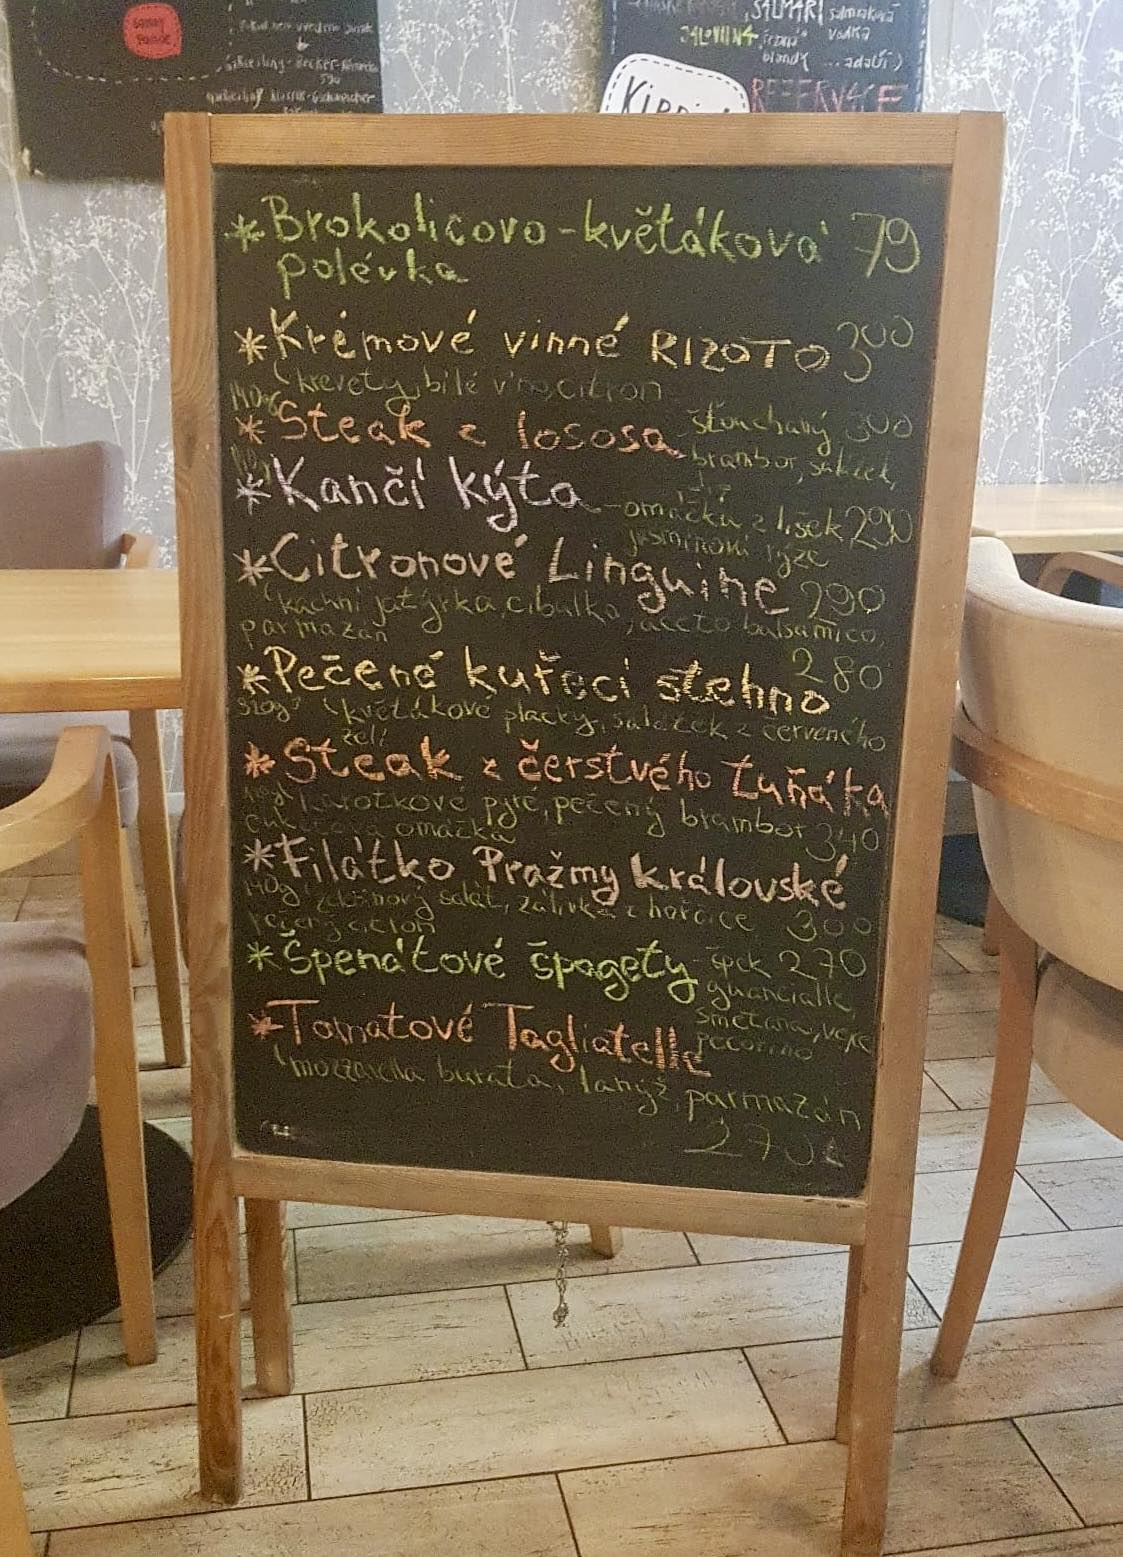 SALMARI salmiaková
vodka
REZERVACE
*Brokolicovo-květáková 79
polévka
*Krémové vinné RIZOTO 300
krevety, bílé víno, citron
140g
*Steak z lososa šťouchaný 300
brambor, salátek,
*Kančí kýta - omáčka z lišek 290
jasmínová rýže
*Citronové Linguine 290
kachní játýrka, cibulka, aceto balsamico,
parmazán
280
*Pečené kuřecí stehno
květákové placky, salátek z červeného
zelí
*Steak z čerstvého tuňáka
pyré, pečený brambor 340
omáčka
*Filátko Pražmy královské
140g salát, zálivka z hořčice 300
*Špenátové špagety - špek 270
guancialle,
smetana, vejce
pecorino
*Tomatové Tagliatelle
mozzarella burata, lanýž, parmazán
270